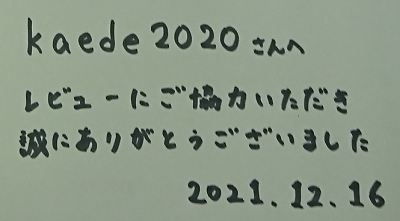 kaede2020さんへ
レビューにご協力いただき
誠にありがとうございました
2021.12.16